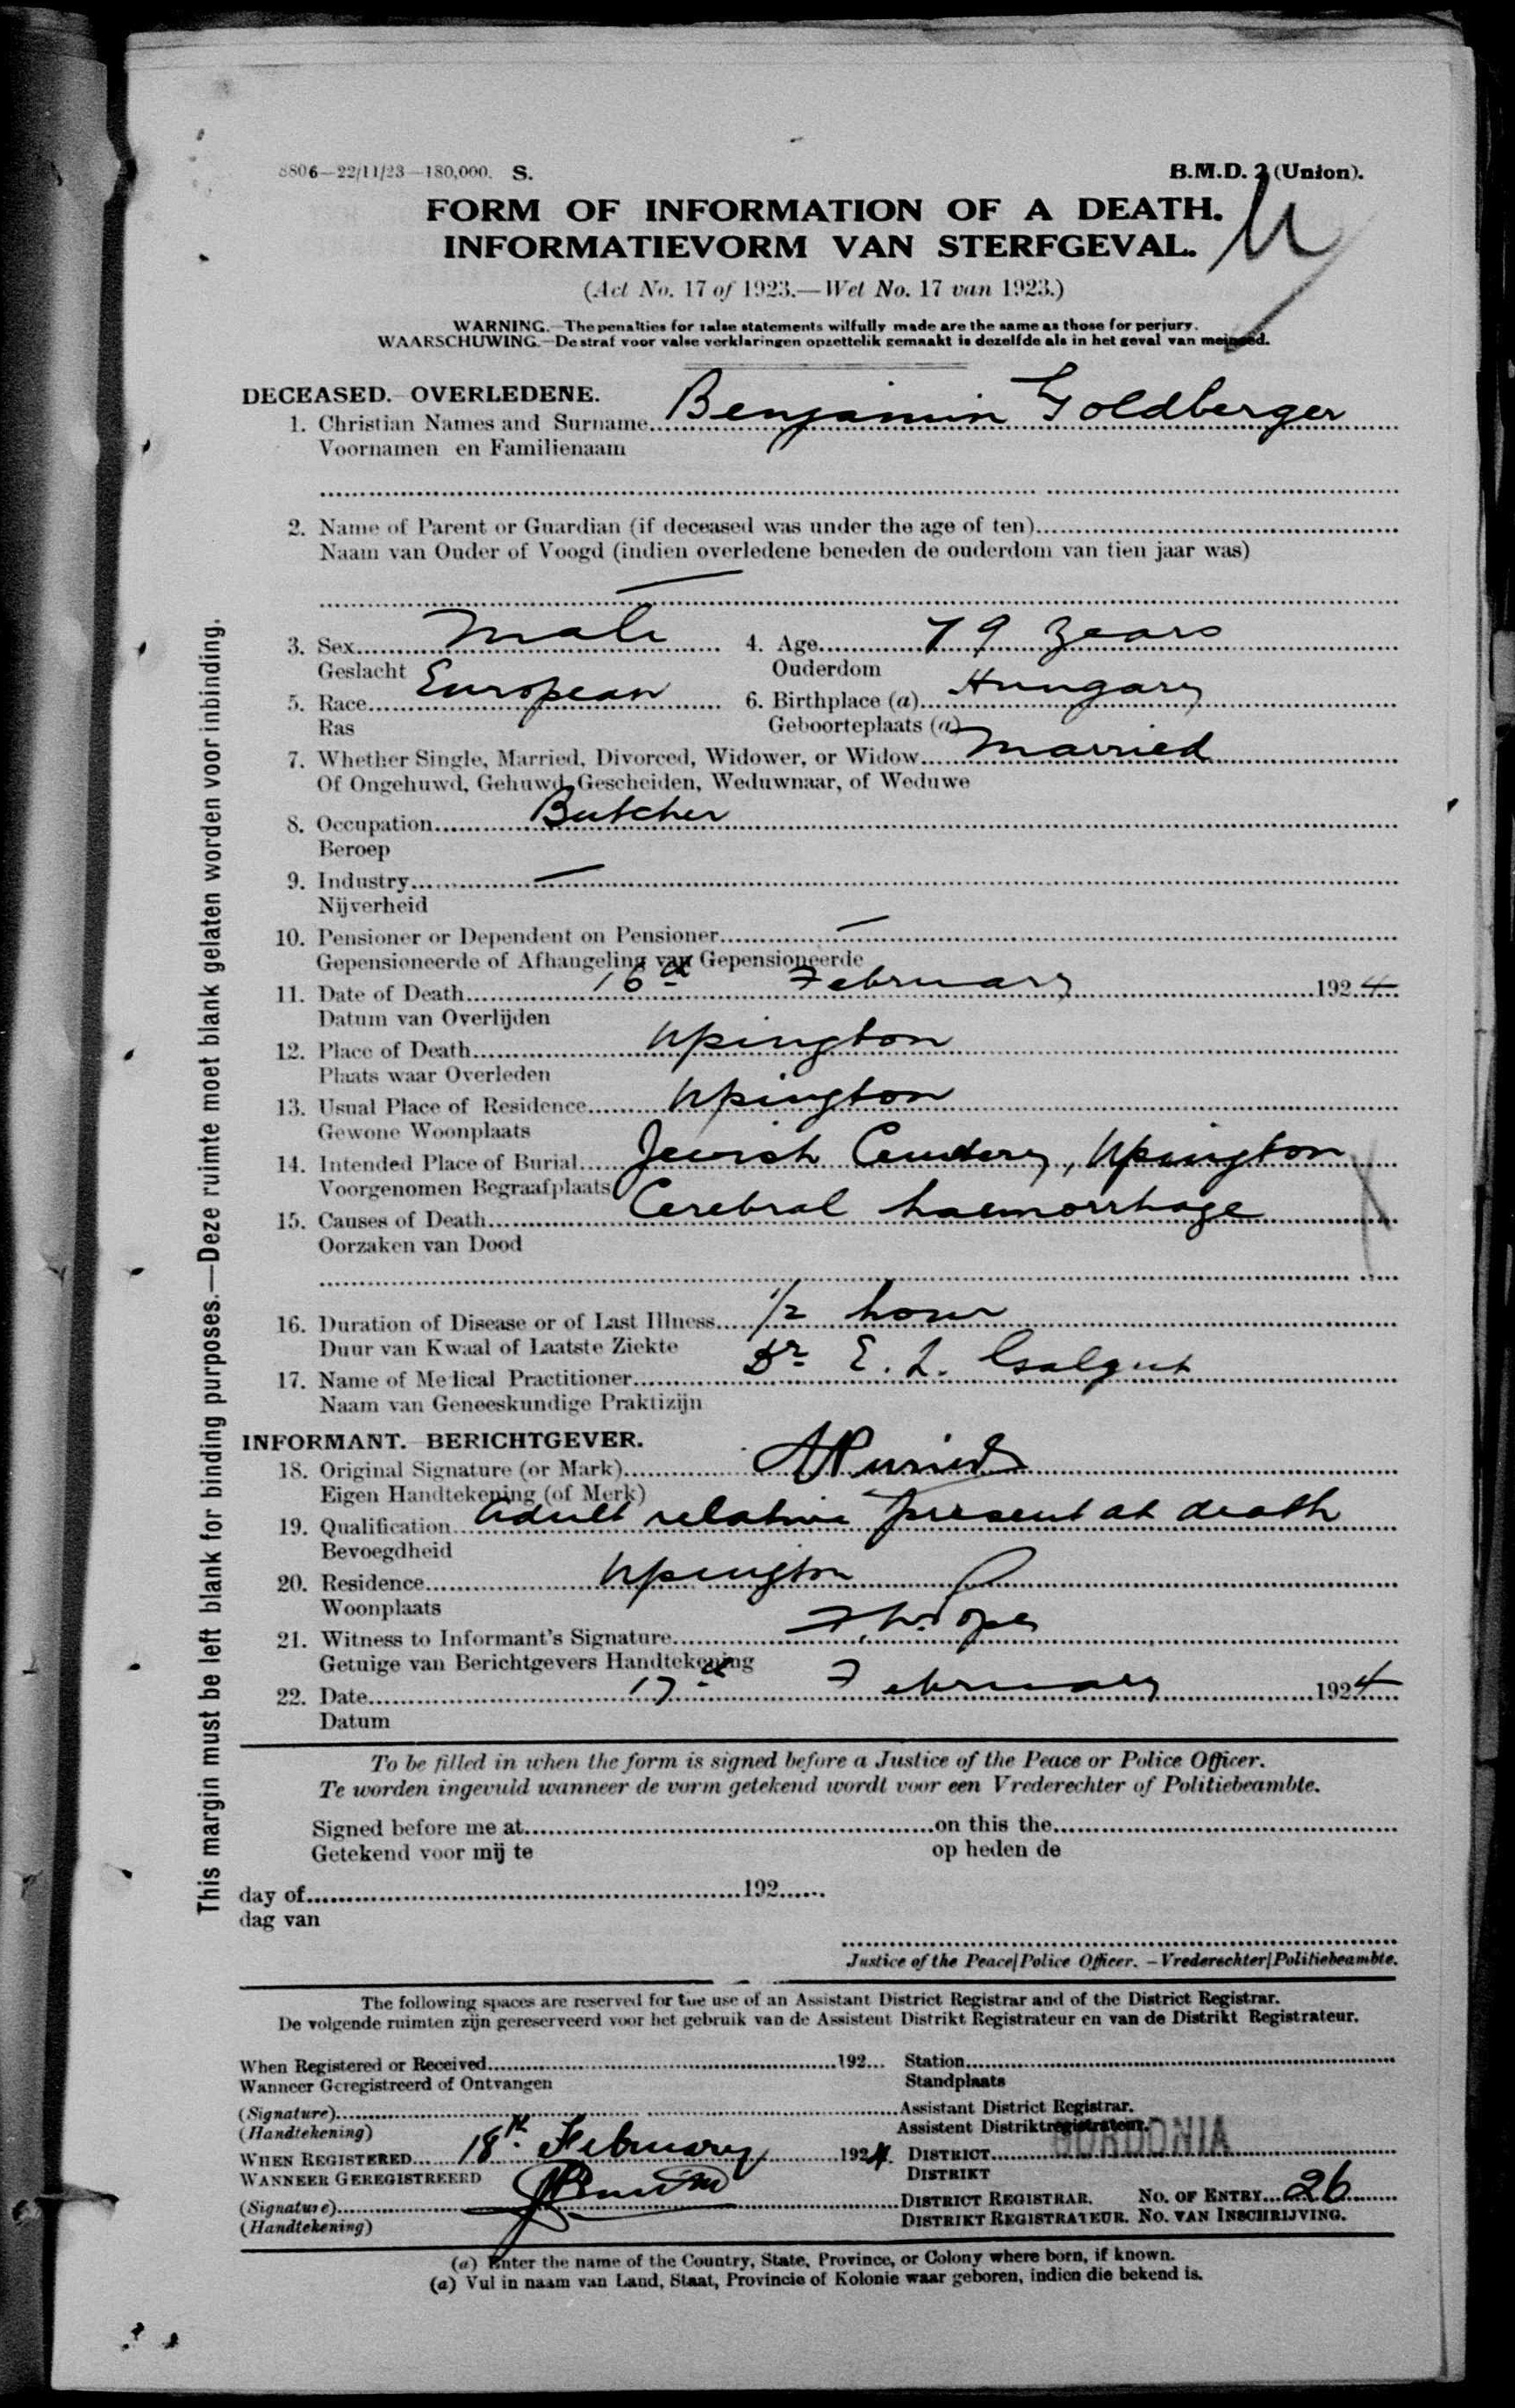 8806—22/11/23—180,000. S.
B.M.D. 2 (Union).
FORM OF INFORMATION OF A DEATH.
INFORMATIEVORM VAN STERFGEVAL.
(Act No. 17 of 1923.—Wet No. 17 van 1923.)
WARNING.—The penalties for false statements wilfully made are the same as those for perjury.
WAARSCHUWING.—De straf voor valse verklaringen opzettelik gemaakt is dezelfde als in het geval van meineed.
DECEASED. OVERLEDENE.
1. Christian Names and Surname Benjamin Goldberger
Voornamen en Familienaam
2. Name of Parent or Guardian (if deceased was under the age of ten)
Naam van Ouder of Voogd (indien overledene beneden de ouderdom van tien jaar was)
—
3. Sex Male 4. Age 79 years
Geslacht Ouderdom
5. Race European 6. Birthplace (a) Hungary
Ras Geboorteplaats (a)
7. Whether Single, Married, Divorced, Widower, or Widow Married
Of Ongehuwd, Gehuwd, Gescheiden, Weduwnaar, of Weduwe
8. Occupation Butcher
Beroep
9. Industry —
Nijverheid
10. Pensioner or Dependent on Pensioner —
Gepensioneerde of Afhangeling van Gepensioneerde
11. Date of Death 16th February 1924
Datum van Overlijden
12. Place of Death Upington
Plaats waar Overleden
13. Usual Place of Residence Upington
Gewone Woonplaats
14. Intended Place of Burial Jewish Cemetery, Upington
Voorgenomen Begraafplaats
15. Causes of Death Cerebral haemorrhage
Oorzaken van Dood
16. Duration of Disease or of Last Illness 1/2 hour
Duur van Kwaal of Laatste Ziekte
17. Name of Medical Practitioner Dr E. L. Galgut
Naam van Geneeskundige Praktizijn
INFORMANT. BERICHTGEVER.
18. Original Signature (or Mark)
Eigen Handtekening (of Merk)
19. Qualification Adult relative present at death
Bevoegdheid
20. Residence Upington
Woonplaats
21. Witness to Informant's Signature
Getuige van Berichtgevers Handtekening
22. Date 17th February 1924
Datum
To be filled in when the form is signed before a Justice of the Peace or Police Officer.
Te worden ingevuld wanneer de vorm getekend wordt voor een Vrederechter of Politiebeambte.
Signed before me at on this the
Getekend voor mij te op heden de
day of 192
dag van
Justice of the Peace/Police Officer.—Vrederechter/Politiebeambte.
The following spaces are reserved for the use of an Assistant District Registrar and of the District Registrar.
De volgende ruimten zijn gereserveerd voor het gebruik van de Assistent Distrikt Registrateur en van de Distrikt Registrateur.
When Registered or Received 192 Station
Wanneer Geregistreerd of Ontvangen Standplaats
(Signature) Assistant District Registrar.
(Handtekening) Assistent Distriktregistrateur.
WHEN REGISTERED 18th February 1924. DISTRICT GORDONIA
WANNEER GEREGISTREERD DISTRIKT
(Signature) DISTRICT REGISTRAR. NO. OF ENTRY 26
(Handtekening) DISTRIKT REGISTRATEUR. NO. VAN INSCHRIJVING.
(a) Enter the name of the Country, State, Province, or Colony where born, if known.
(a) Vul in naam van Land, Staat, Provincie of Kolonie waar geboren, indien die bekend is.
This margin must be left blank for binding purposes.—Deze ruimte moet blank gelaten worden voor inbinding.